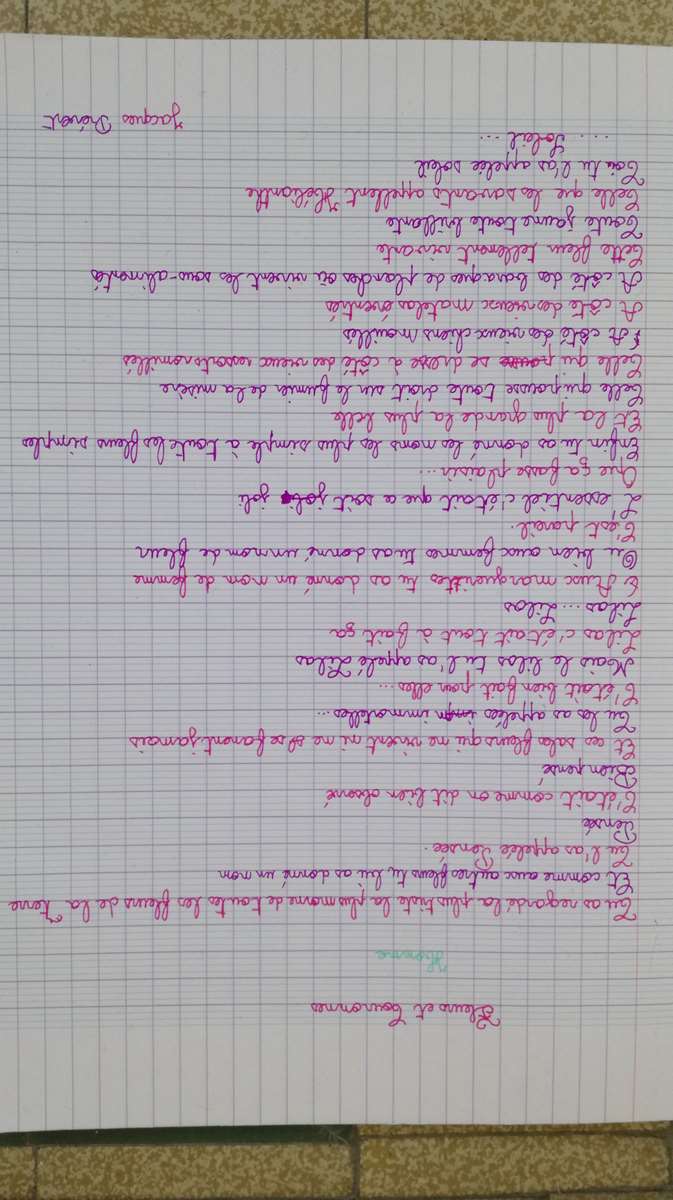 Fleurs et Couronnes
Homme
Tu as regardé la plus triste la plus morne de toutes les fleurs de la Terre
Et comme aux autres fleurs tu lui as donné un nom
Tu l'as appelée Pensée.
Pensée
C'était comme on dit bien observé
Bien pensé
Et ces sales fleurs qui ne vivent ni ne se fanent jamais
Tu les as appelées immortelles...
C'était bien fait pour elles...
Mais le lilas tu l'as appelé Lilas
Lilas c'était tout à fait ça
Lilas... Lilas
Aux marguerites tu as donné un nom de femme
Ou bien aux femmes tu as donné un nom de fleur
C'est pareil.
L'essentiel c'était que ce soit joli
Que ça fasse plaisir...
Enfin tu as donné les noms les plus simple à toute les fleurs simples
Et la plus grande la plus belle
Celle qui pousse toute droit sur le fumier de la misère
Celle qui se dresse à côté des vieux ressorts rouillés
A côté des vieux chiens mouillés
A côté des vieux matelas éventrés
A côté des baraques de planches où vivent les sous-alimentés
Cette fleur tellement vivante
Toute jaune toute brillante
Celle que les savants appellent Hélianthe
Toi tu l'as appelée soleil
... Soleil...
Jacques Prévert